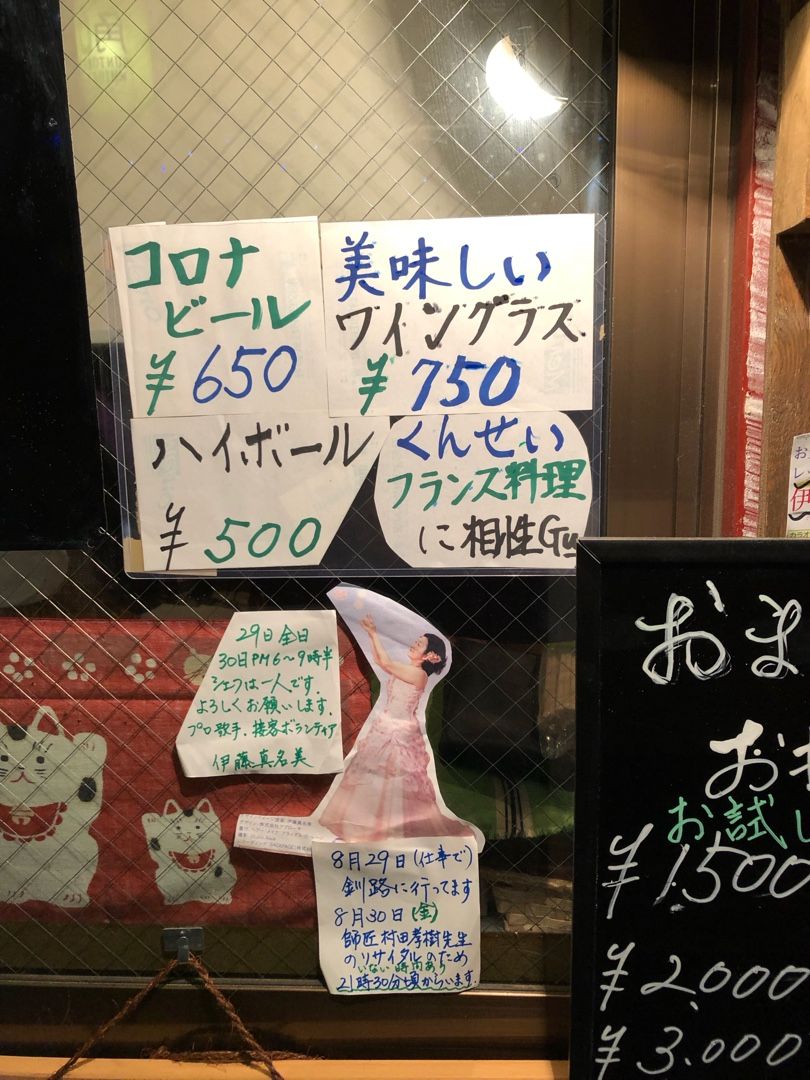 コロナ
ビール
¥650
美味しい
ワイングラス
¥750
ハイボール
¥500
くんせい
フランス料理
に相性Gu
29日金日
30日PM6〜9時半
シェフは一人です.
よろしくお願いします.
プロ歌手.接客ボランティア
伊藤真名美
8月29日(仕事で)
釧路に行ってます
8月30日(金)
師匠村田孝樹先生
のリサイタルのため
いない時間あり
21時30分頃からいます.
おま
お試し
¥1,500
¥2,000
¥3,000